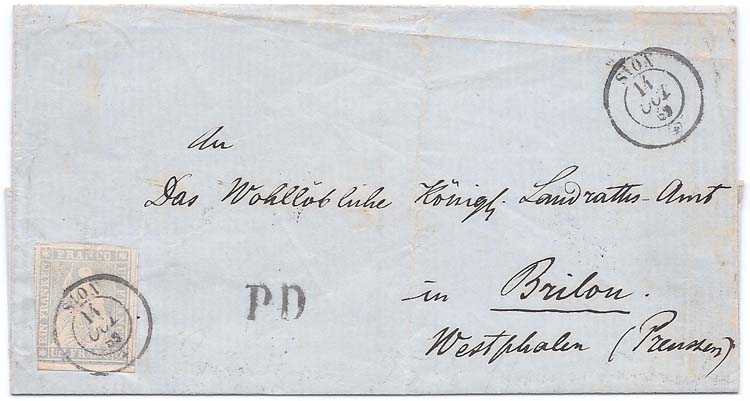 SION
14
OCT
59
An
Das Wohllöbliche Königl. Landraths-Amt
in Brilon.
Westphalen (Preussen)
PD
FRANCO
EIN FRANKEN
UN FRANC
SION
14
OCT
59